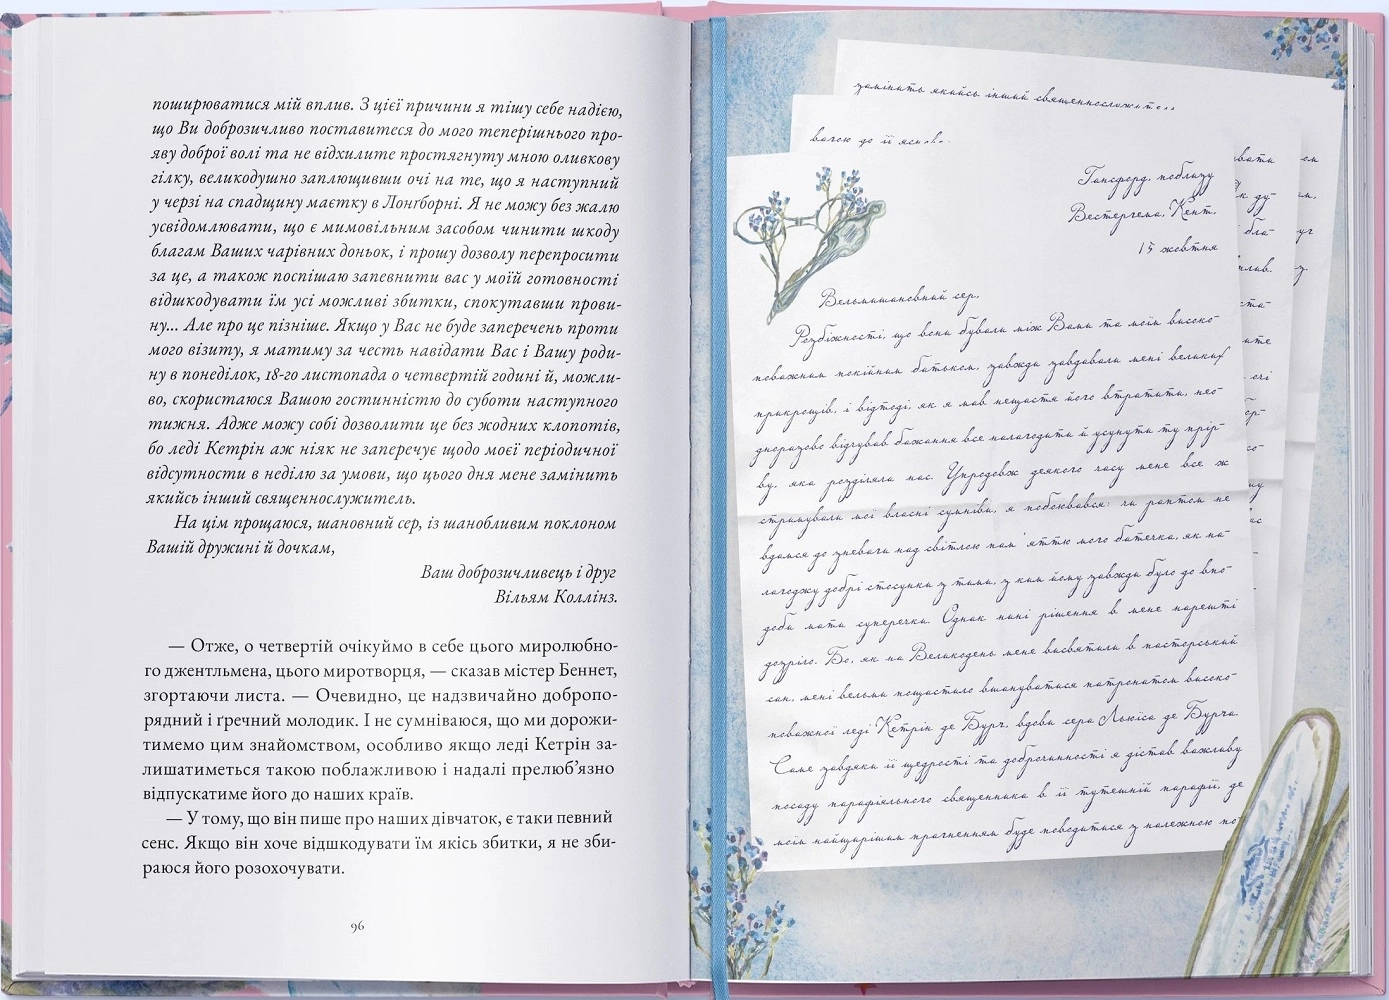 поширюватися мій вплив. З цієї причини я тішу себе надією,
що Ви доброзичливо поставитеся до мого теперішнього про-
яву доброї волі та не відхилите простягнуту мною оливкову
гілку, великодушно заплющивши очі на те, що я наступний
у черзі на спадщину маєтку в Лонґборні. Я не можу без жалю
усвідомлювати, що є мимовільним засобом чинити шкоду
благам Ваших чарівних доньок, і прошу дозволу перепросити
за це, а також поспішаю запевнити вас у моїй готовності
відшкодувати їм усі можливі збитки, спокутавши прови-
ну... Але про це пізніше. Якщо у Вас не буде заперечень проти
мого візиту, я матиму за честь навідати Вас і Вашу роди-
ну в понеділок, 18-го листопада о четвертій годині й, можли-
во, скористаюся Вашою гостинністю до суботи наступного
тижня. Адже можу собі дозволити це без жодних клопотів,
бо леді Кетрін аж ніяк не заперечує щодо моєї періодичної
відсутности в неділю за умови, що цього дня мене замінить
якийсь інший священнослужитель.
На цім прощаюся, шановний сер, із шанобливим поклоном
Вашій дружині й дочкам,
Ваш доброзичливець і друг
Вільям Коллінз.
— Отже, о четвертій очікуймо в себе цього миролюбно-
го джентльмена, цього миротворця, — сказав містер Беннет,
згортаючи листа. — Очевидно, це надзвичайно добропо-
рядний і ґречний молодик. І не сумніваюся, що ми дорожи-
тимемо цим знайомством, особливо якщо леді Кетрін за-
лишатиметься такою поблажливою і надалі прелюб’язно
відпускатиме його до наших країв.
— У тому, що він пише про наших дівчаток, є таки певний
сенс. Якщо він хоче відшкодувати їм якісь збитки, я не зби-
раюся його розохочувати.
96
замінить якийсь інший священнослужите
вагою до її
Гансфорд, поблизу
Вестергема, Кент,
15 жовтня
Вельмишановний сер,
Розбіжності, що вони бували між Вами та моїм високо-
поважним покійним батьком, завжди завдавали мені великих
прикрощів, і відтоді, як я мав нещастя його втратити, нео-
дноразово відчував бажання все налагодити й усунути ту прір-
ву, яка розділяла нас. Упродовж деякого часу мене все ж
стримували мої власні сумніви, я побоювався: чи раптом не
вдамся до зневаги над світлою пам'яттю мого батечка, як на-
лагоджу добрі стосунки з тими, з ким йому завжди було до впо-
доби мати суперечки. Однак нині рішення в мене нарешті
дозріло. Бо, як на Великодень мене висвятили в пасторський
сан, мені вельми пощастило вшануватися патронатом високо-
поважної леді Кетрін де Бург, вдови сера Льюїса де Бурга.
Саме завдяки її щедрості та доброчинності я дістав важливу
посаду парафіяльного священника в її тутешній парафії, де
моїм найщирішим прагненням буде поводитися з належною по-